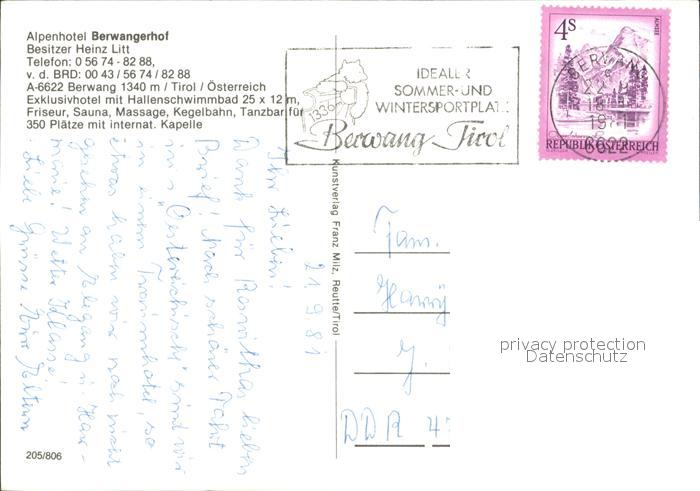 Alpenhotel Berwangerhof
Besitzer Heinz Litt
Telefon: 0 56 74 - 82 88,
v. d. BRD: 00 43 / 56 74 / 82 88
A-6622 Berwang 1340 m / Tirol / Österreich
Exklusivhotel mit Hallenschwimmbad 25 x 12 m,
Friseur, Sauna, Massage, Kegelbahn, Tanzbar für
350 Plätze mit internat. Kapelle
1336
IDEALER
SOMMER-UND
WINTERSPORTPLATZ
Berwang Tirol
4S
ALMSEE
BERWANG
6622
REPUBLIK ÖSTERREICH
Kunstverlag Franz Milz, Reutte/Tirol
21.9.81
Ihr Lieben!
Dank für Roswithas lieben
Brief! Nach schöner Fahrt
ins "Österreichische" sind wir
in einem Traumhotel, so
etwas haben wir noch nicht
gesehen an Eleganz u. Har-
monie! Wetter Klasse!
Liebe Grüsse Eure Eltern
Fam.
DDR 4
205/806
privacy protection
Datenschutz